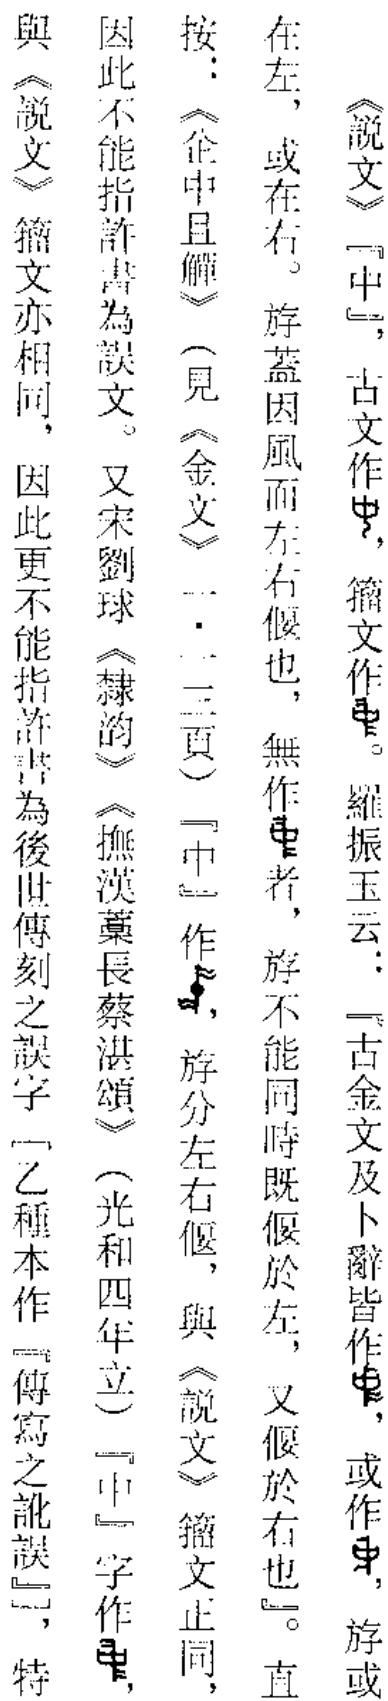 《説文》『中』，古文作，籀文作。羅振玉云：『古金文及卜辭皆作，或作，斿或
在左，或在右。斿蓋因風而左右偃也，無作者，斿不能同時既偃於左，又偃於右也』。直
按：《企中且觶》（見《金文》一·一三頁）『中』作，斿分左右偃，與《説文》籀文正同，
因此不能指許書為誤文。又宋劉球《隸韵》《撫漢藁長蔡湛頌》（光和四年立）『中』字作，
與《説文》籀文亦相同，因此更不能指許書為後世傳刻之誤字［乙種本作『傳寫之訛誤』］，特